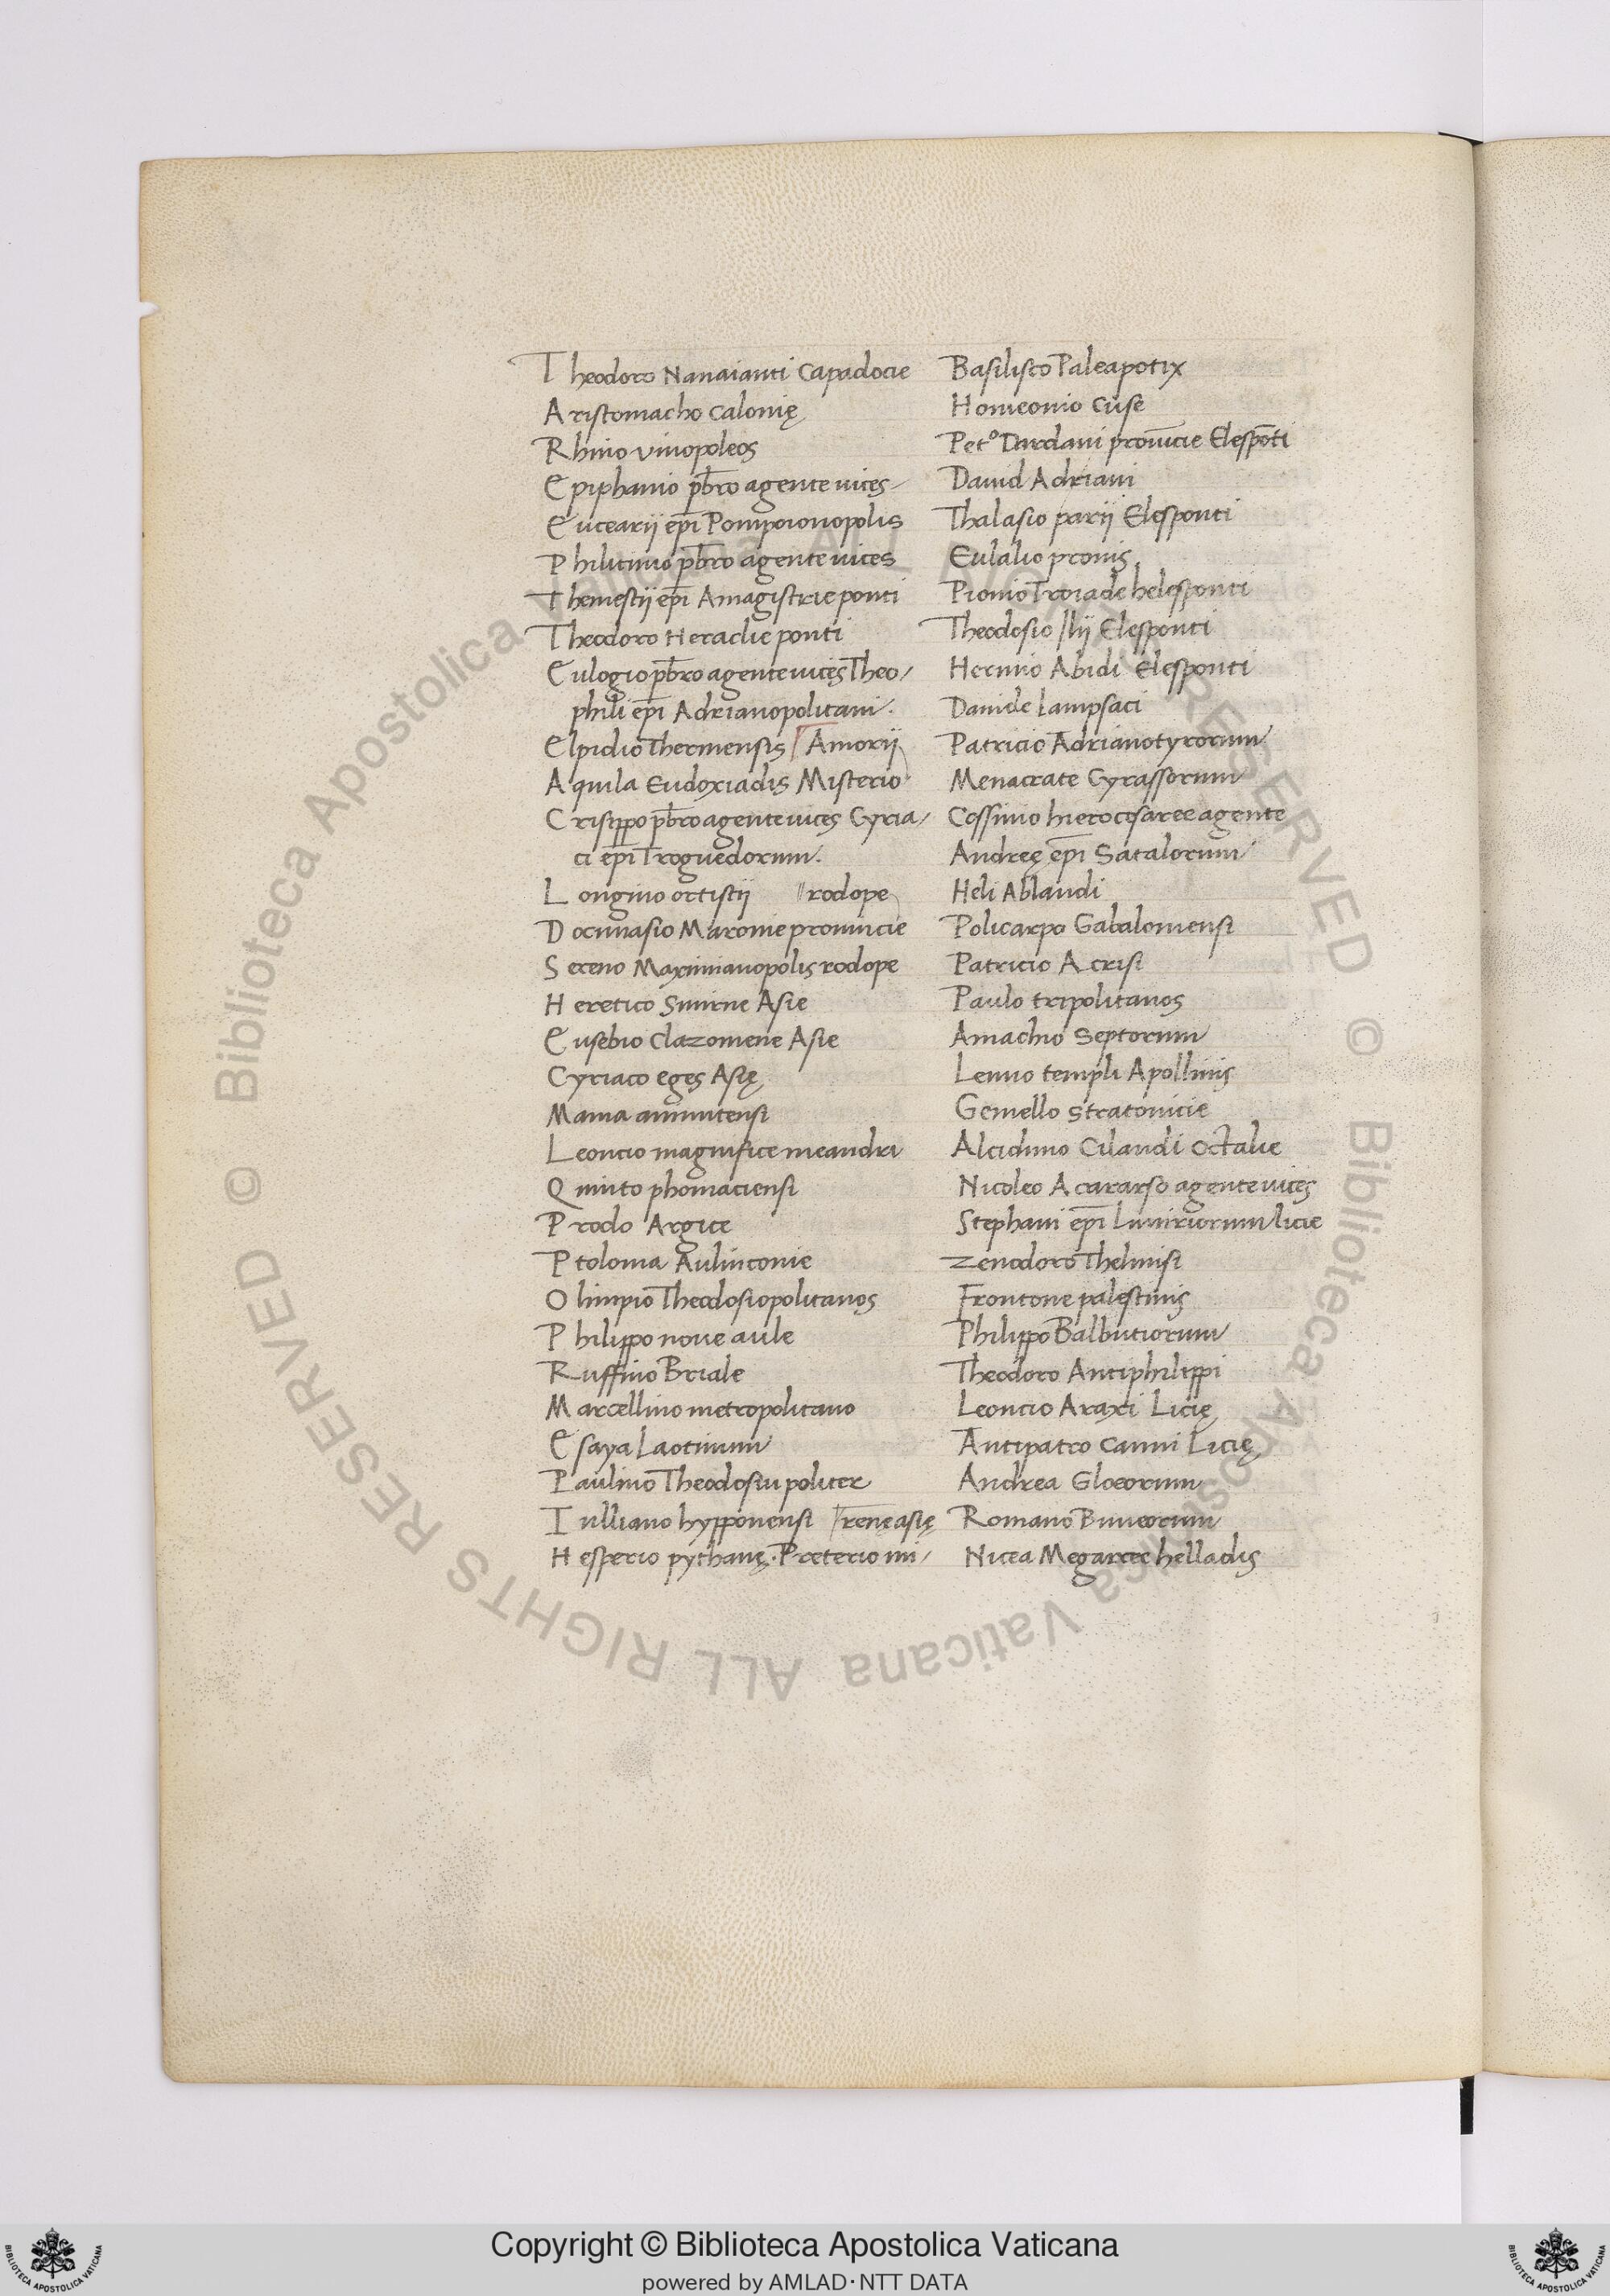 Theodoro Nanaianti Capadocie
Aristomacho Calonię
Rhino vinopoleos
Epiphanio pb̄ro agente uices
Eucearij ep̄i Pompoionopolis
Philitimo pb̄ro agente uices
Themestij ep̄i Amagistrie ponti
Theodoro Heraclie ponti
Eulogio pb̄ro agente uicęs Theo/
phili ep̄i Adrianopolitani.
Elpidio Thermensis Amorij
Aquila Eudoxiadis Misterio
Crisippo pb̄ro agente uicęs Cyria/
ci ep̄i Troguedorum.
Longino ortistij rodope
Docimasio Maronie prouincie
Sereno Maximianopolis rodope
Heretico Smirne Asie
Eusebio Clazomene Asie
Cyriaco egęs Asię
Mama aninutensi
Leoncio magnifice meandri
Quinto phomaciensi
Prodo Argice
Ptoloma Aulinconie
Olimpio Theodosiopolitanos
Philippo noue aule
Ruffino Briale
Marcellino metropolitano
Esaya Laotinum
Paulino Theodosiu politer
Iulliano hypponensi renę asię
Hesperio pythanę. Preterio mi/
Basilisco Paleapotix
Homeonio Cuse
Petº Dardani prouīcie Elespōti
Dauid Adriani
Thalasio parij Elesponti
Eulalio pronis
Pionio Troiade helesponti
Theodosio Ilij Elesponti
Hermio Abidi Elesponti
Daniele Lampsaci
Patricio Adrianotyrorum
Menacrate Cyrassorum
Cossinio hierocęsaree agente
Andreę ep̄i Satalorum
Heli Ablandi
Policarpo Gabalomensi
Patricio Acrisi
Paulo tripolitanos
Amachio Septorum
Lenuo templi Apollinis
Gemello Stratonicie
Alcidimo Cilandi Octalie
Nicoleo Acararso agente uicęs
Stephani ep̄i Limiriorum licie
Zenodoro Thelmisi
Frontone palęstinis
Philippo Balbutiorum
Theodoro Antiphilippi
Leoncio Araxi Licię
Antipatro Canni Licię
Andrea Gloeorum
Romano Buneorum
Nicea Megarcec helladis
© Biblioteca Apostolica Vaticana ALL RIGHTS RESERVED
© Biblioteca Apostolica Vaticana ALL RIGHTS RESERVED
Copyright © Biblioteca Apostolica Vaticana
powered by AMLAD·NTT DATA
BIBLIOTECA APOSTOLICA VATICANA
BIBLIOTECA APOSTOLICA VATICANA